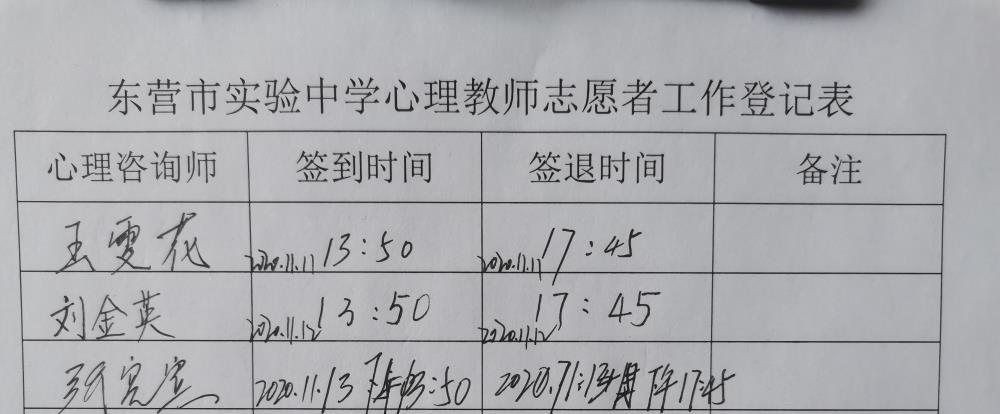 东营市实验中学心理教师志愿者工作登记表
心理咨询师 签到时间 签退时间 备注
王雯花 2020.11.11 13:50 2020.11.11 17:45
刘金英 2020.11.12 13:50 2020.11.12 17:45
2020.11.13 13:50 2020.11.13 下午17:45